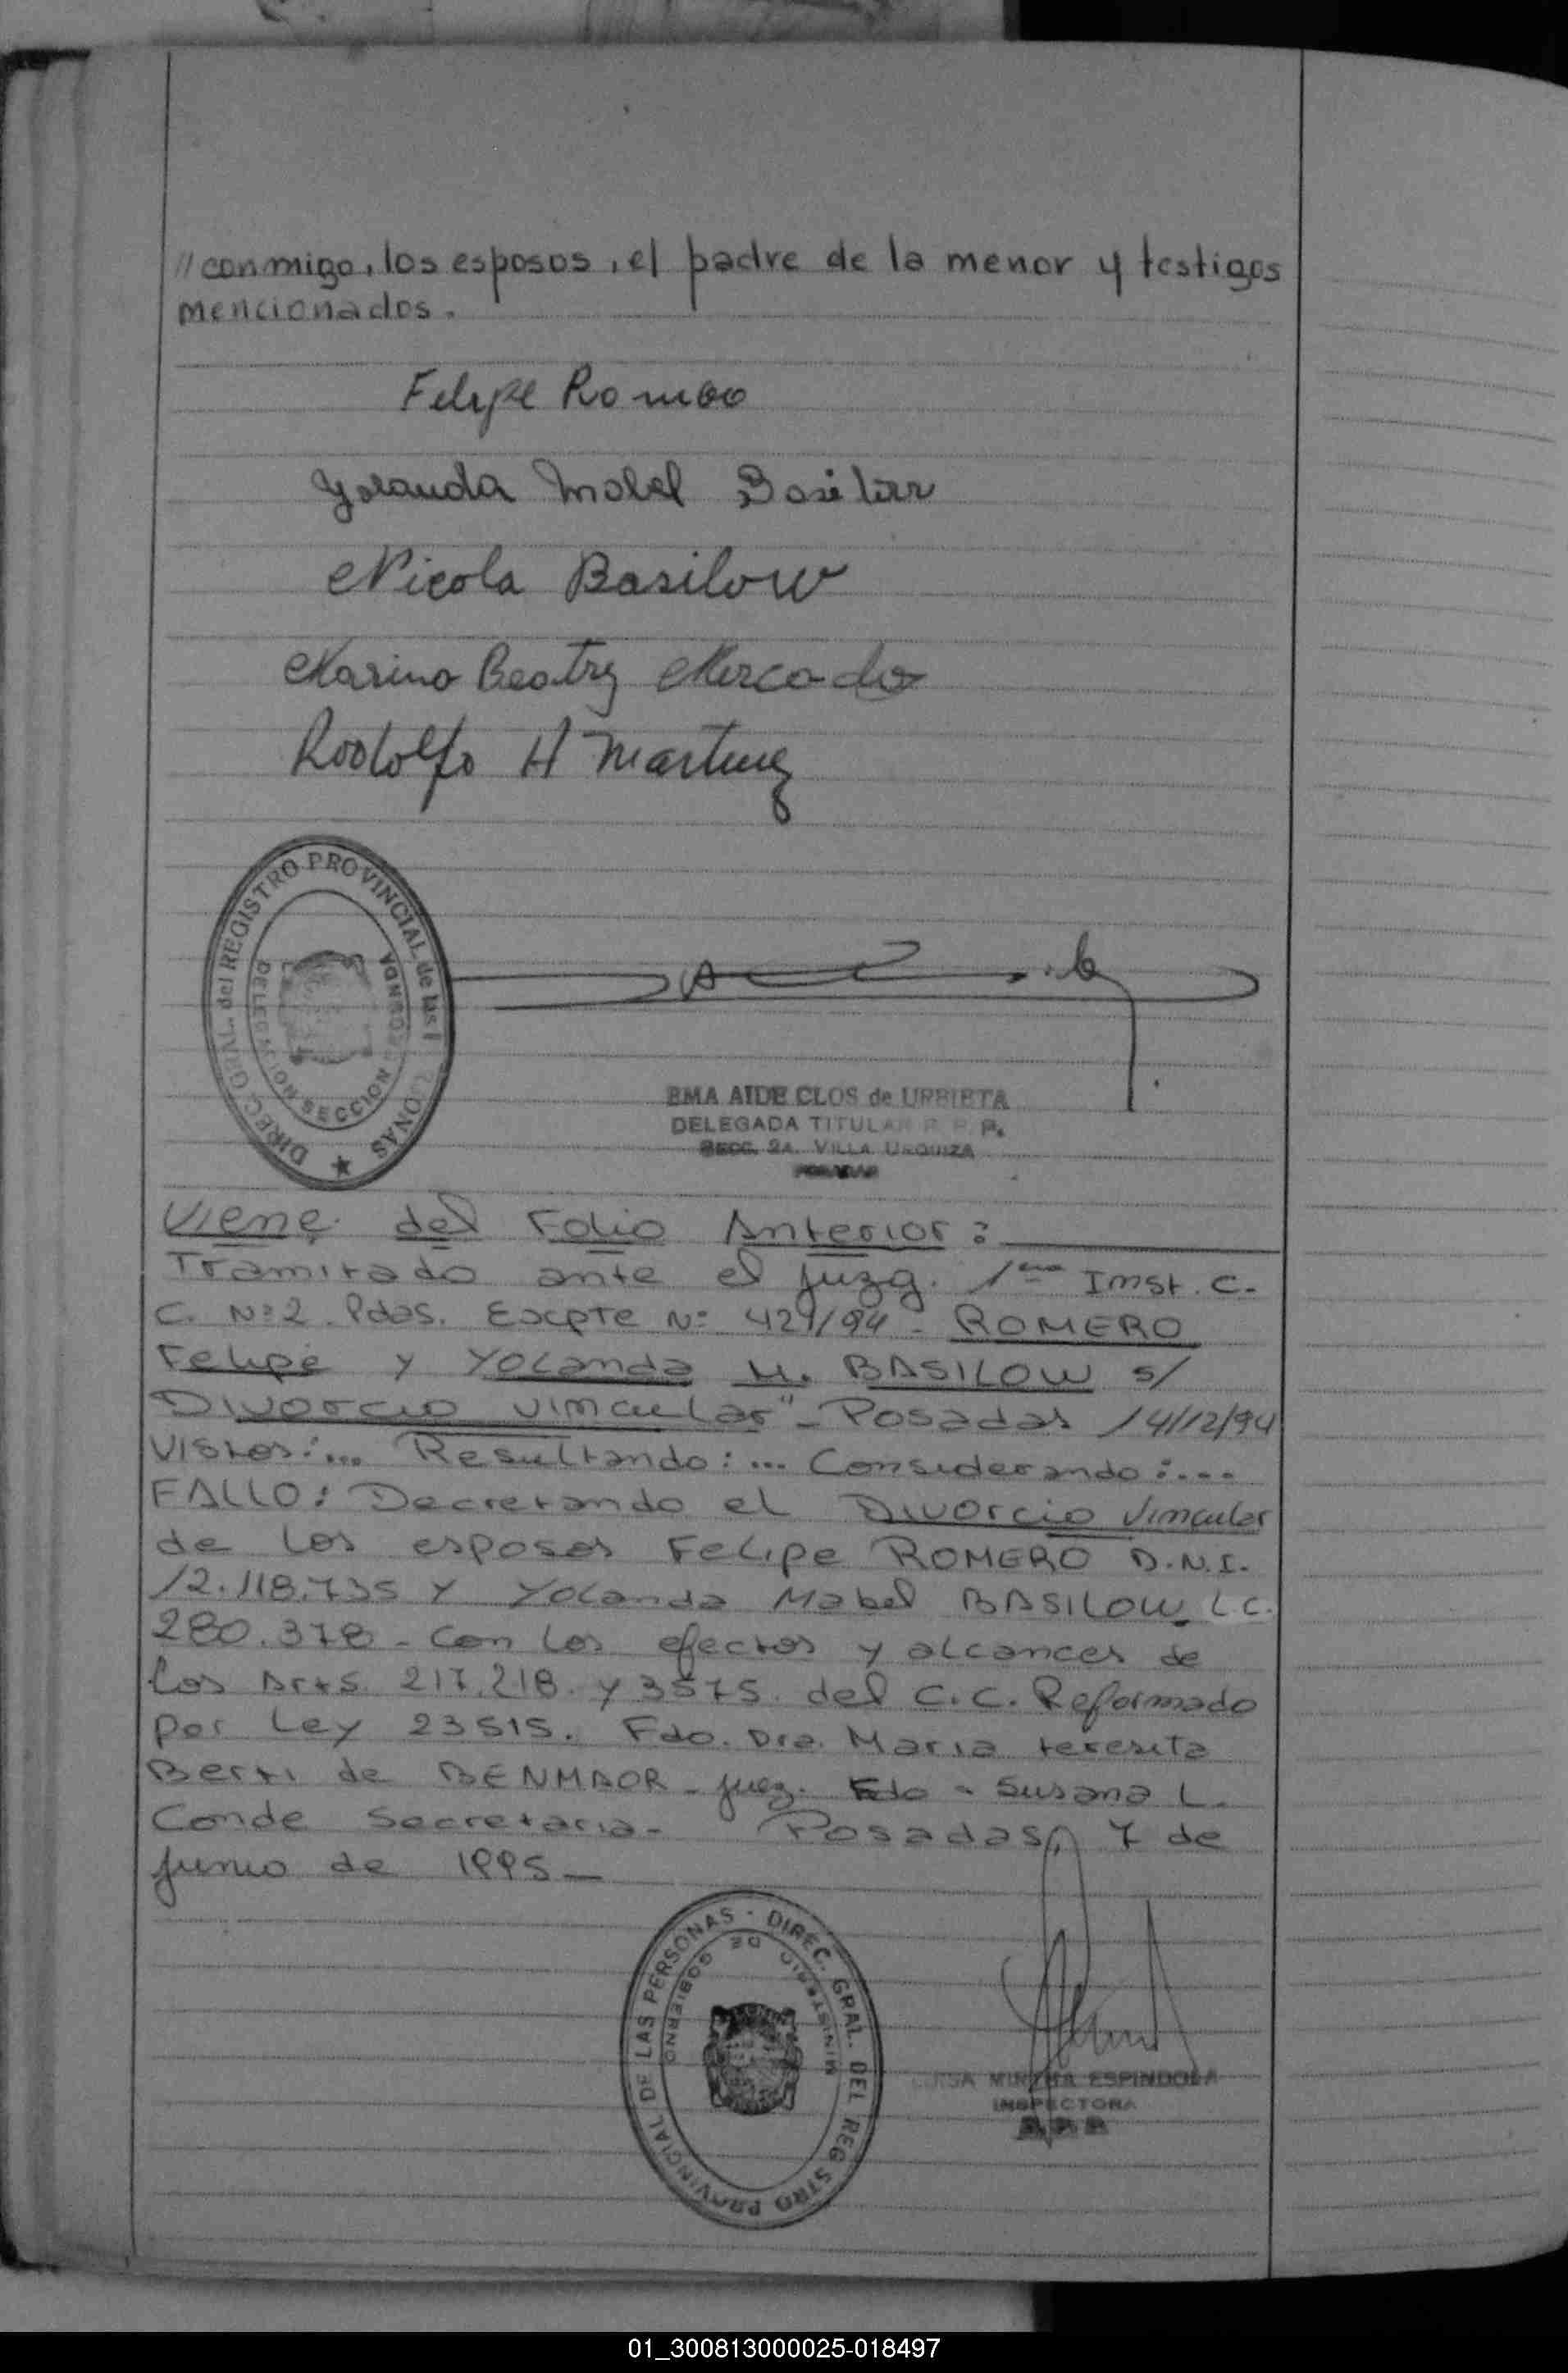 //conmigo, los esposos, el padre de la menor y testigos
mencionados.
Felipe Romero
Yolanda Mabel Basilow
Nicola Basilow
Marina Beatriz Mercado
Rodolfo H Martinez
DIREC. GRAL. del REGISTRO PROVINCIAL de las
DELEGACION SECCION SEGUNDA
EMA AIDE CLOS de URBIETA
DELEGADA TITULAR R. P. P.
SECC. 2A. VILLA URQUIZA
POSADAS
Viene del Folio Anterior:
Tramitado ante el juzg. 1era Inst. C.
C. Nº2. Pdas. Excpte Nº 429/94 - ROMERO
Felipe y Yolanda M. BASILOW s/
Divorcio vincular" - Posadas 14/12/94
Vistos:... Resultando:... Considerando:....
FALLO: Decretando el Divorcio vincular
de los esposos Felipe ROMERO D.N.I.
12.118.735 y Yolanda Mabel BASILOW L.C.
280.378 - Con los efectos y alcances de
los Arts. 217, 218. y 3575. del C.C. Reformado
por Ley 23515. Fdo. Dra. Maria teresita
Berti de BENMAOR - juez. Fdo - Susana L.
Conde Secretaria - Posadas, 7 de
junio de 1995 -
DIREC. GRAL. DEL REGISTRO PROVINCIAL DE LAS PERSONAS -
MINISTERIO DE GOBIERNO
LUISA MIRTHA ESPINDOLA
INSPECTORA
01_300813000025-018497